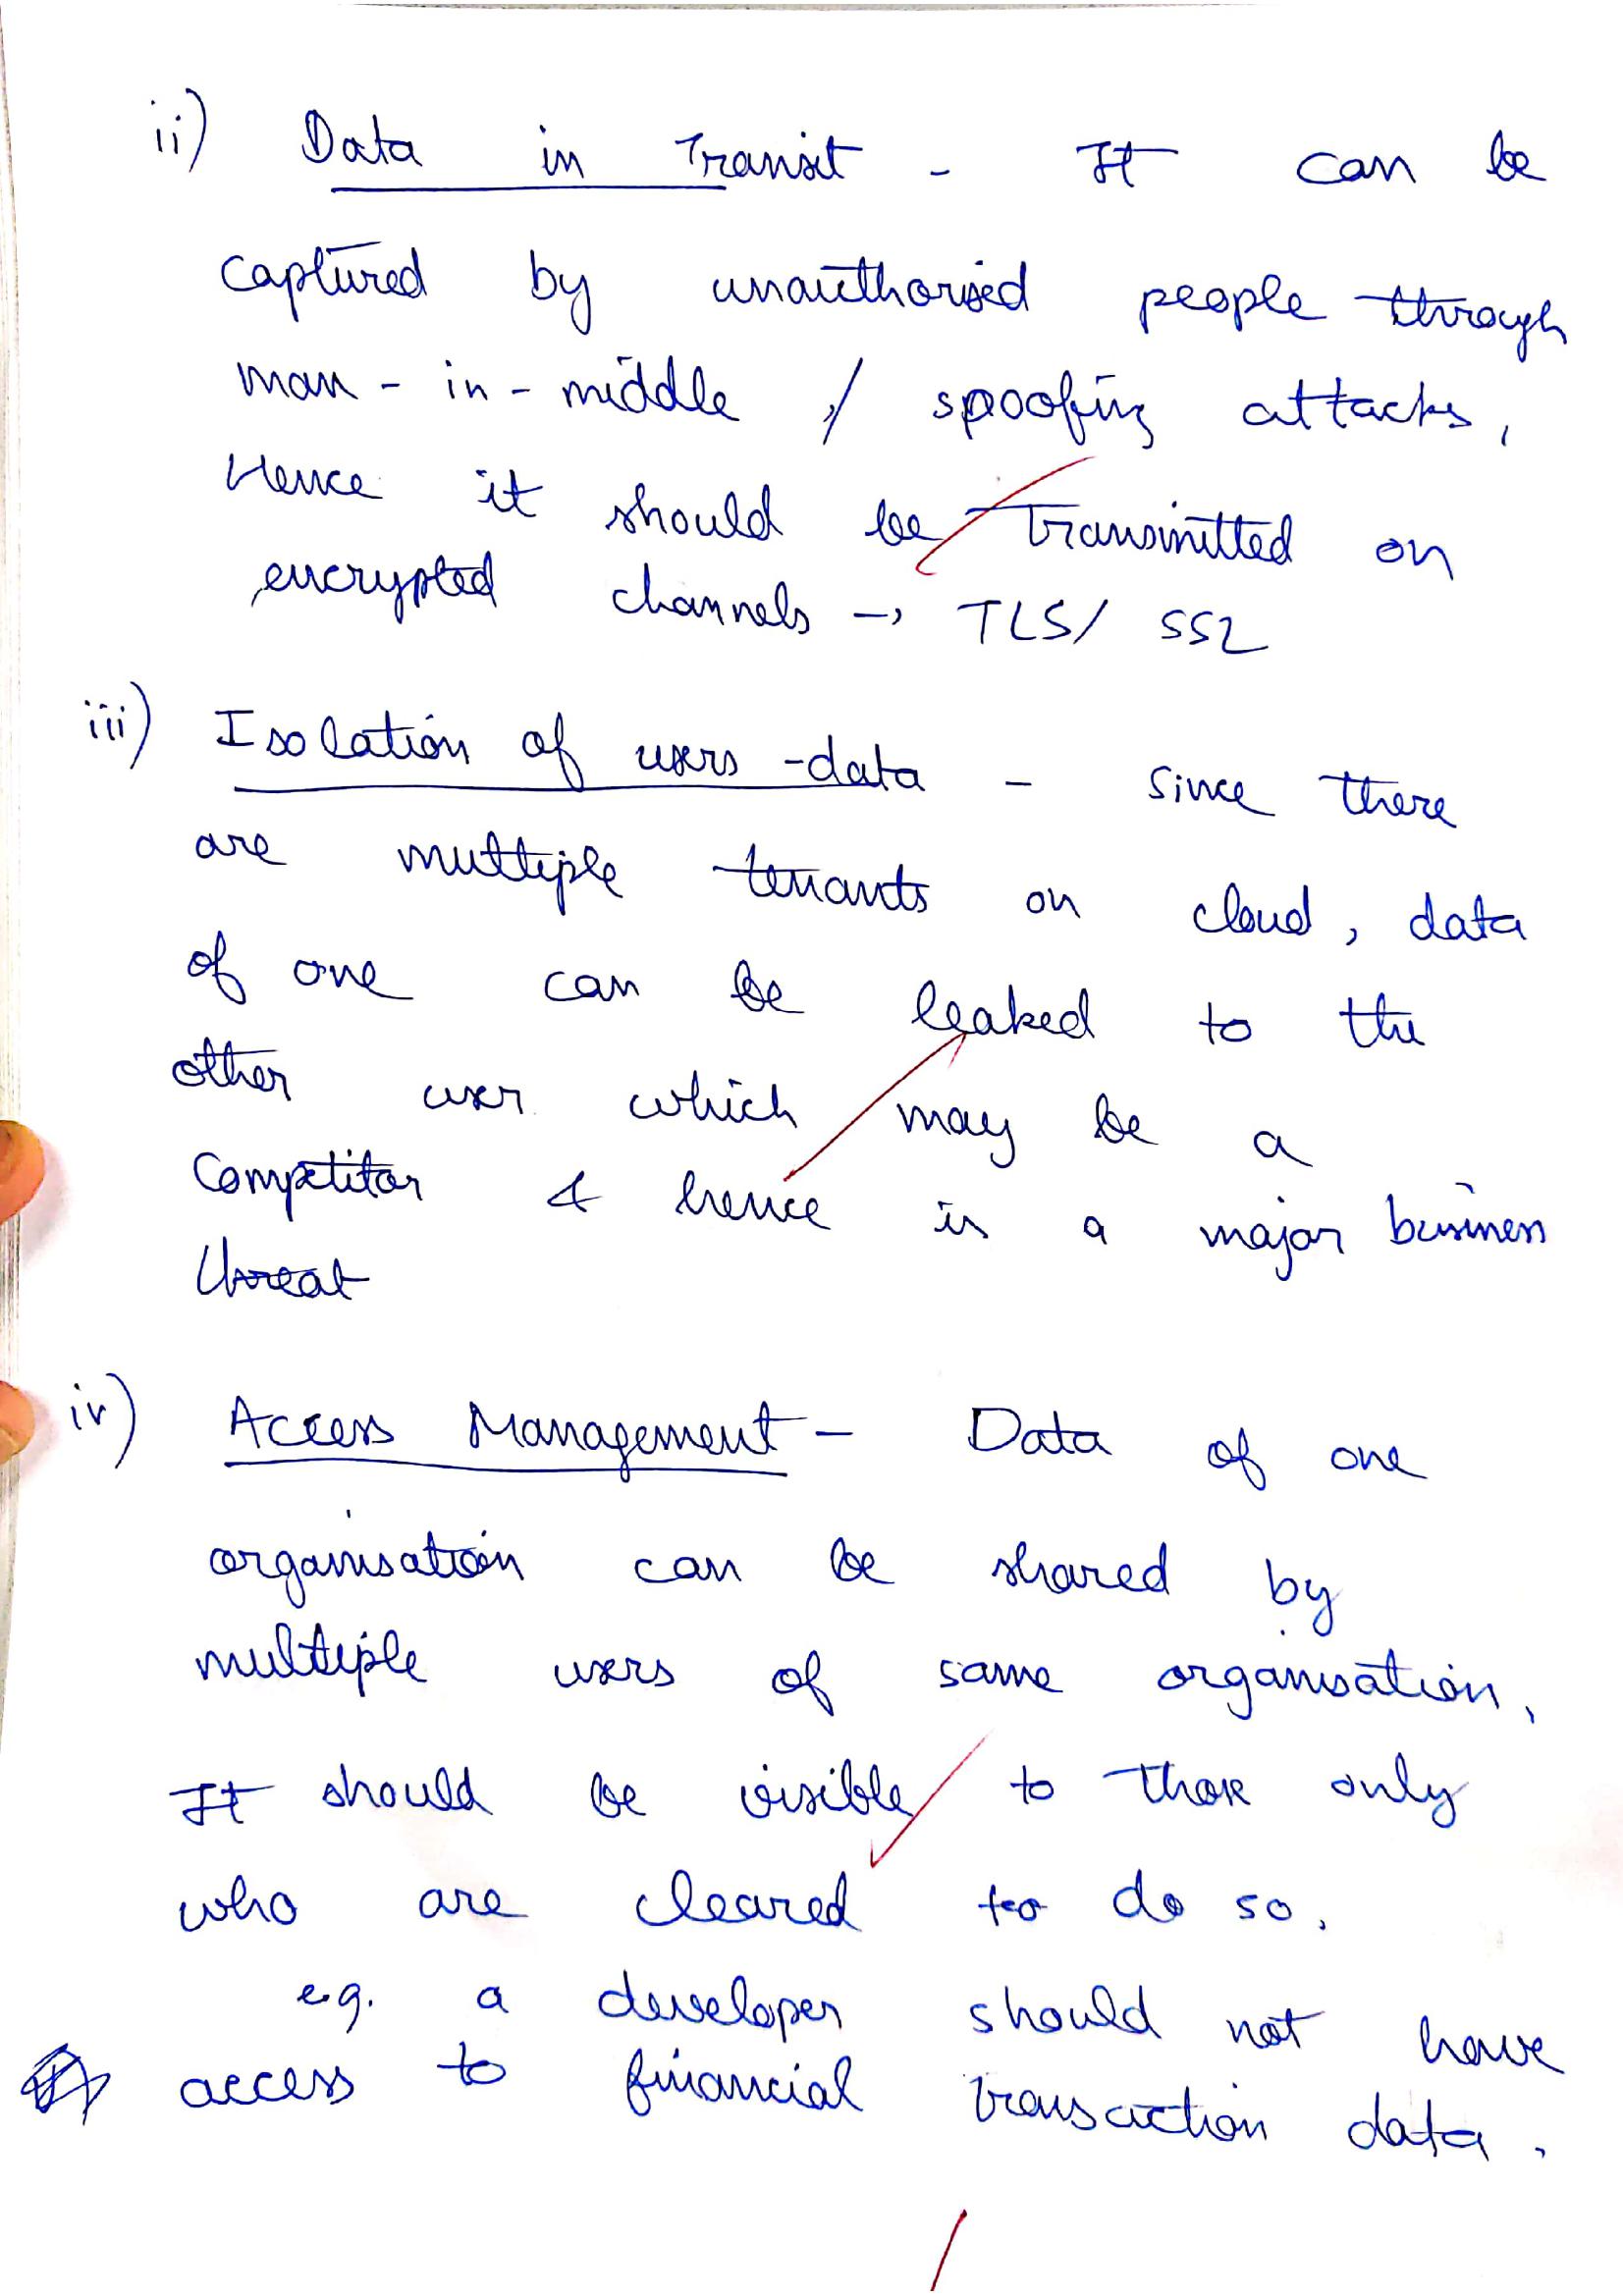 ii) Data in Transit - It can be
captured by unauthorised people through
man-in-middle / spoofing attacks,
Hence it should be transmitted on
encrypted channels → TLS/ SSL
iii) Isolation of users-data - Since there
are multiple tenants on cloud, data
of one can be leaked to the
other user which may be a
Competitor & hence is a major business
threat
iv) Access Management - Data of one
organisation can be shared by
multiple users of same organisation,
It should be visible to those only
who are cleared to do so.
e.g. a developer should not have
access to financial transaction data.